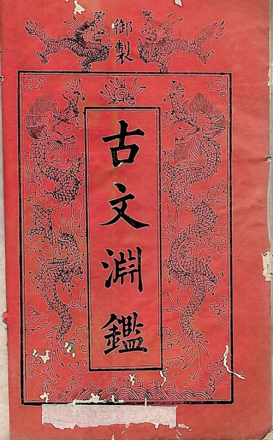 御製
古文淵鑑